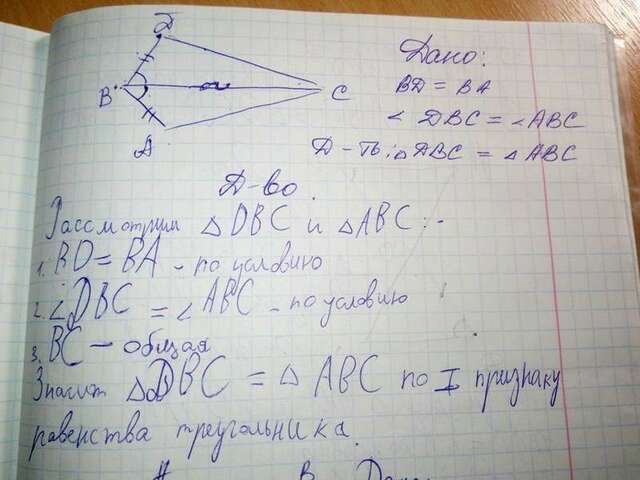 D
B
C
A
Дано:
BD = BA
∠ DBC = ∠ABC
Д-ть: △DBC = △ABC
Д-во.
Рассмотрим △DBC и △ABC:-
1. BD = BA - по условию
2. ∠DBC = ∠ABC - по условию
3. BC - общая
Значит △DBC = △ABC по I признаку
равенства треугольника.